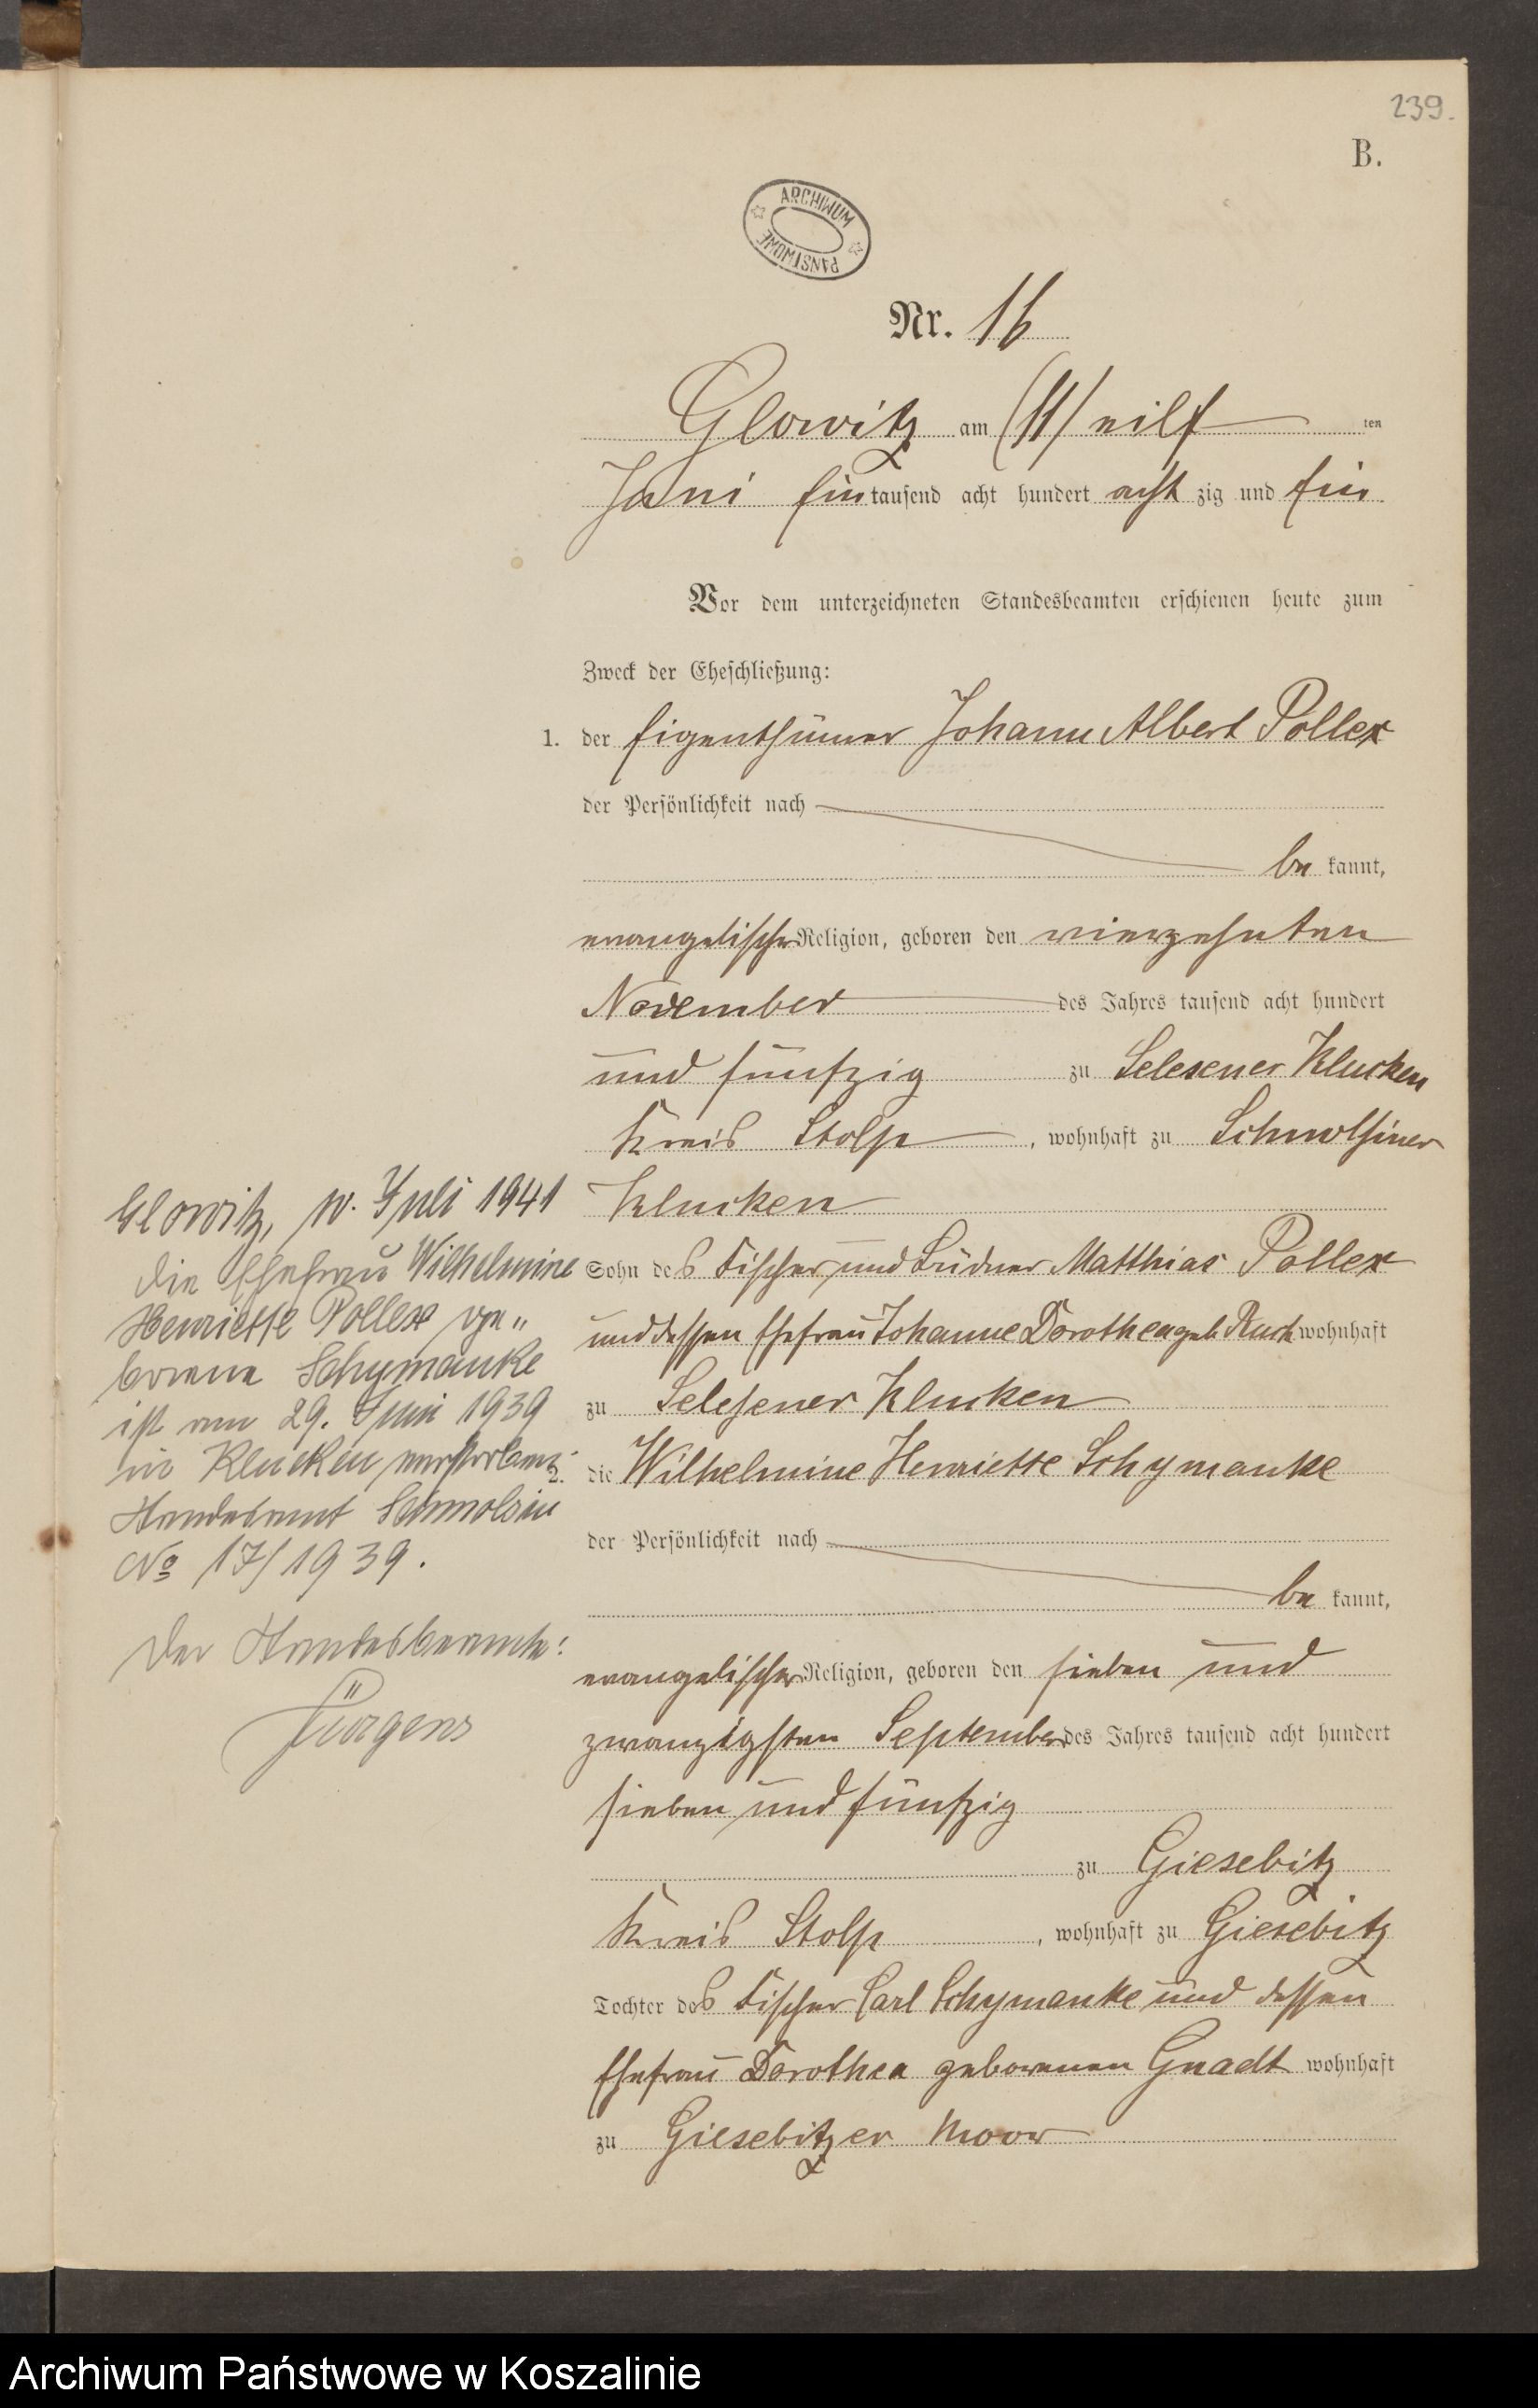 239.
B.
ARCHIWUM
PAŃSTWOWE
Nr. 16
Glowitz am (11) eilf ten
Juni Ein tausend acht hundert acht zig und Ein
Vor dem unterzeichneten Standesbeamten erschienen heute zum
Zweck der Eheschließung:
1. der Eigenthümer Johann Albert Pollex
der Persönlichkeit nach
be kannt,
evangelischer Religion, geboren den vierzehnten
November des Jahres tausend acht hundert
und fünfzig zu Selesener Klucken
Kreis Stolp, wohnhaft zu Schmolsiner
Klucken
Sohn des Fischer und Büdner Matthias Pollex
und dessen Ehefrau Johanne Dorothea geb. Ruch wohnhaft
zu Selesener Klucken
2. die Wilhelmine Henriette Schymanke
der Persönlichkeit nach
be kannt,
evangelischer Religion, geboren den sieben und
zwanzigsten September des Jahres tausend acht hundert
sieben und fünfzig
zu Giesebitz
Kreis Stolp, wohnhaft zu Giesebitz
Tochter des Fischer Carl Schymanke und dessen
Ehefrau Dorothea geborenen Gnadt wohnhaft
zu Giesebitzer Moor
Glowitz, 10. Juli 1941
Die Ehefrau Wilhelmine
Henriette Pollex ge„
borene Schymanke
ist am 29. Juni 1939
in Klucken verstorben.
Standesamt Schmolsin
No 17/1939.
Der Standesbeamte:
Jürgens
Archiwum Państwowe w Koszalinie